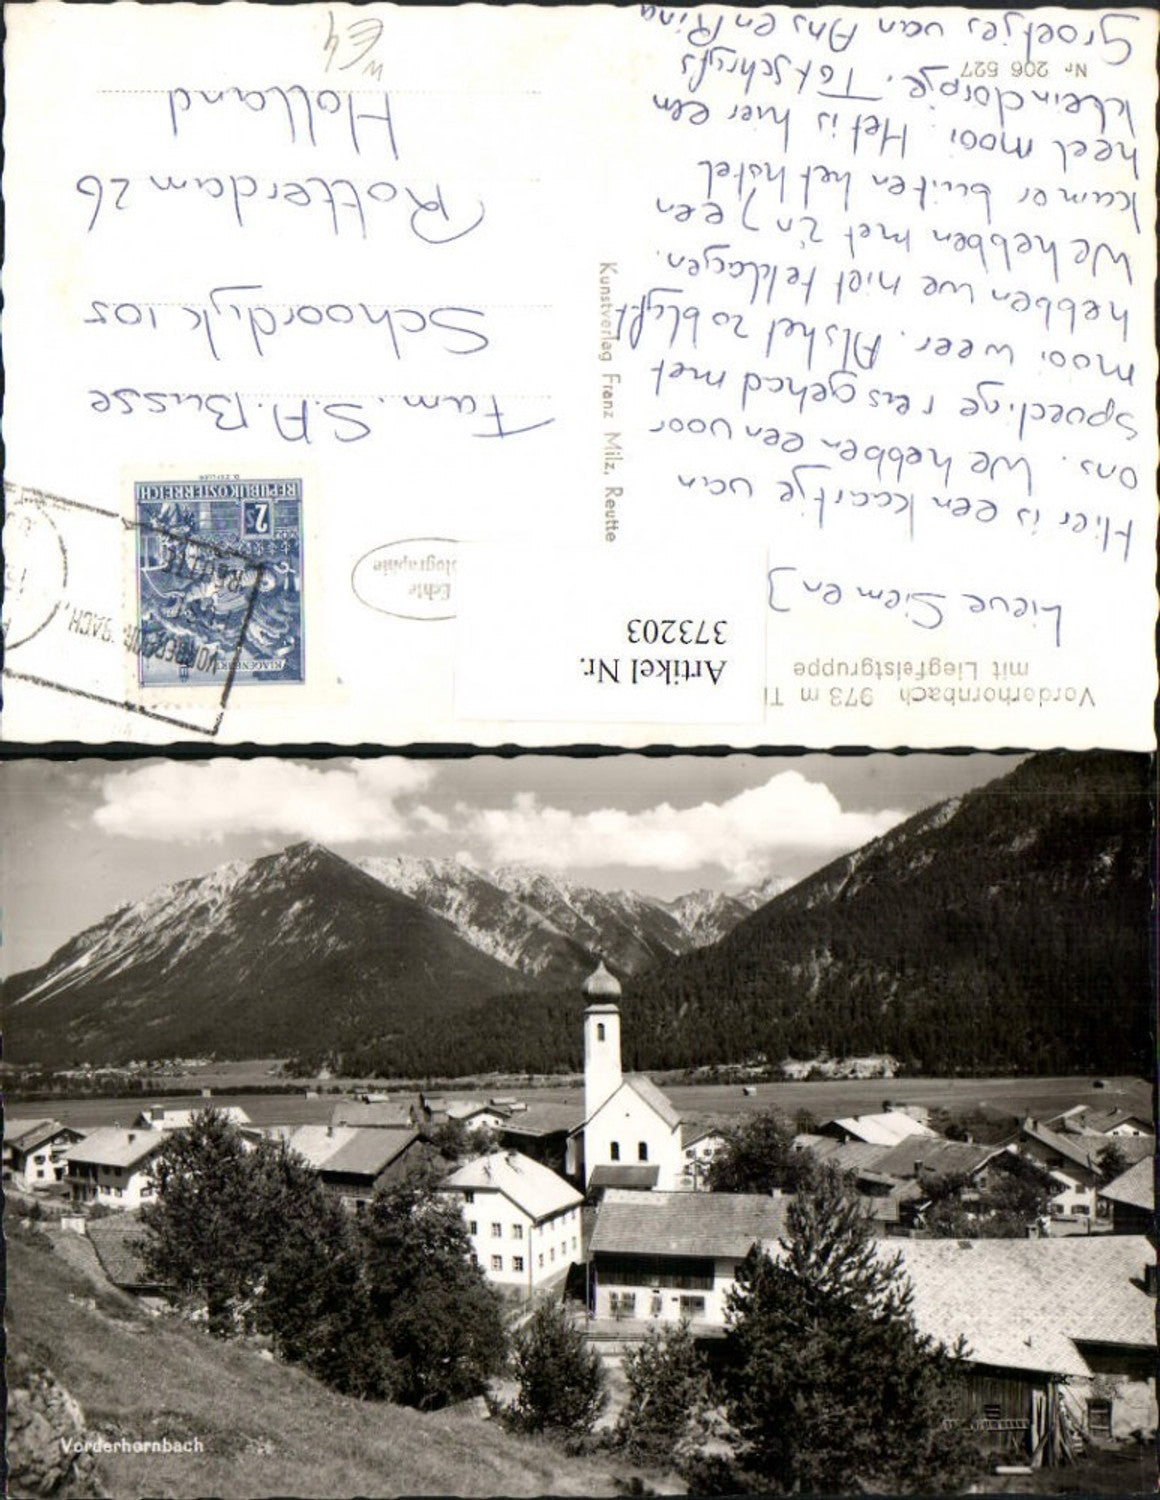 Vorderhornbach 973 m
mit Liegfeistgruppe
Artikel Nr.
373203
Lieve Siem en J
Hier is een kaartje van
ons. We hebben een voor
spoedige reis gehad met
mooi weer. Als het zo blijft
hebben we niet te klagen.
We hebben met z'n 7 een
kamer buiten het hotel
heel mooi. Het is hier een
klein dorpje.
Nr 206 527
Groetjes van Ans en Rina
Kunstverlag Franz Milz, Reutte
Echte
REPUBLIK ÖSTERREICH
2s
KLAGENFURT
VORDERHORNBACH,
REUTTE
Fam. S.A. Busse
Schoordijk 105
Rotterdam 26
Holland
Vorderhornbach